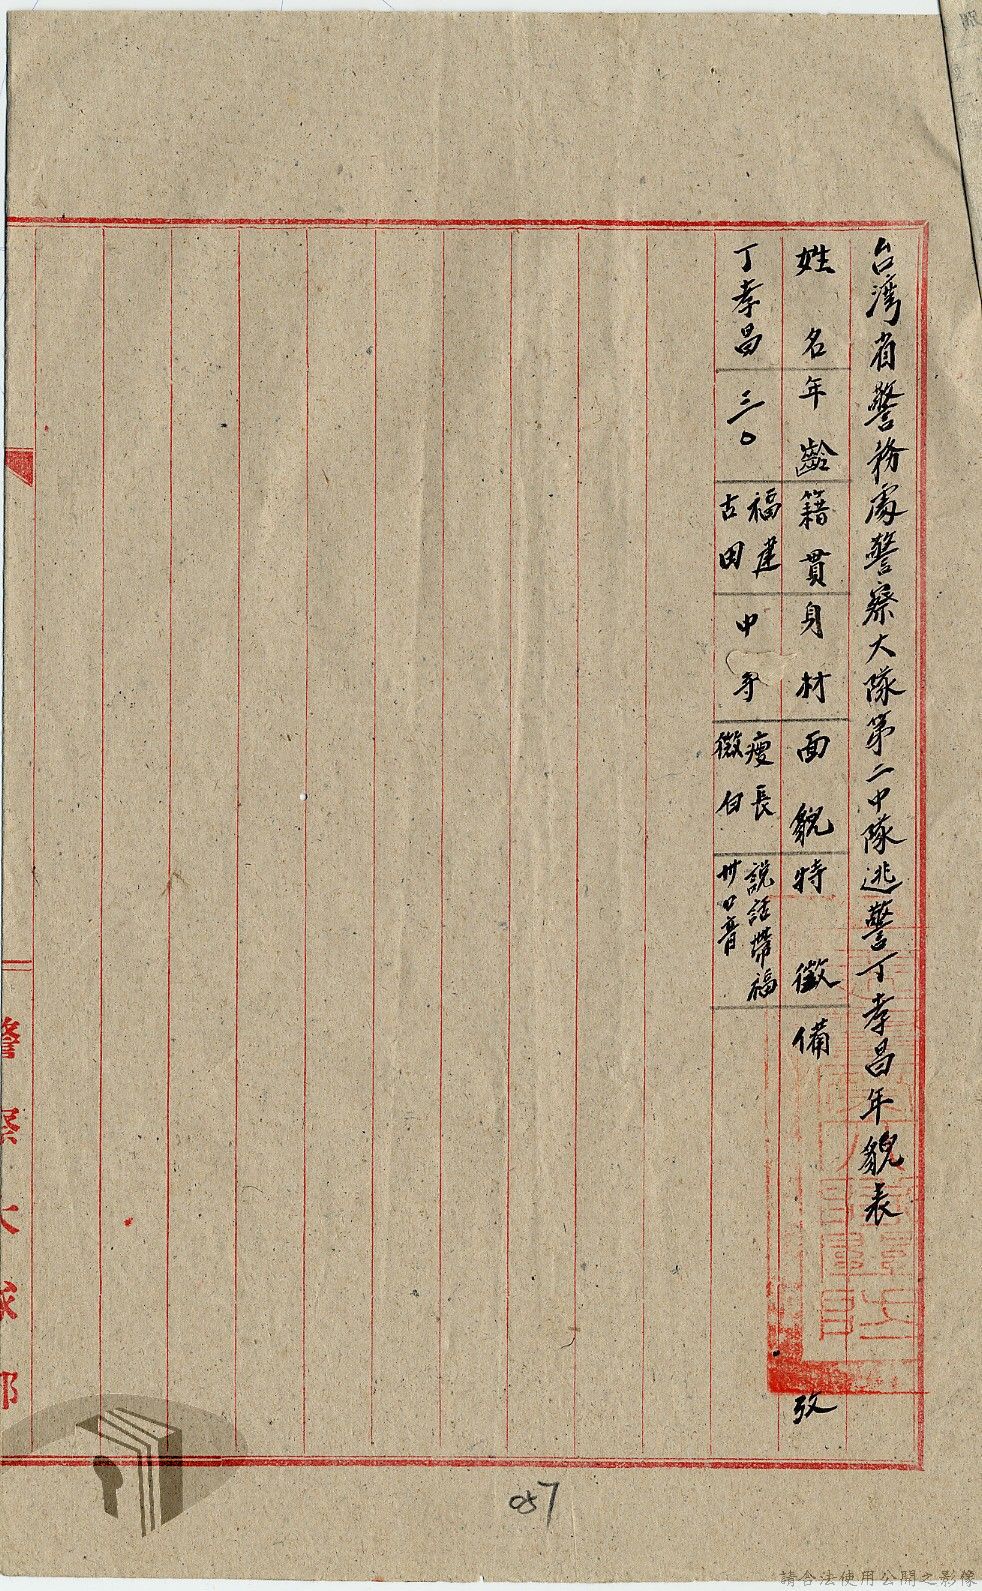 台湾省警務處警察大隊第二中隊逃警丁孝昌年貌表
姓名 年齡 籍貫 身材 面貌 特徵 備攷
丁孝昌 三〇 福建古田 中等 瘦長微白 說話帶福州口音
警察大隊部
057
請合法使用公開之影像